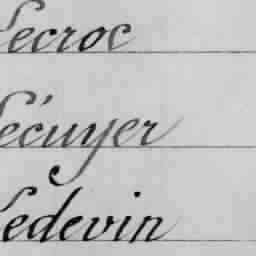 Lecroc
Lécuyer
Ledevin